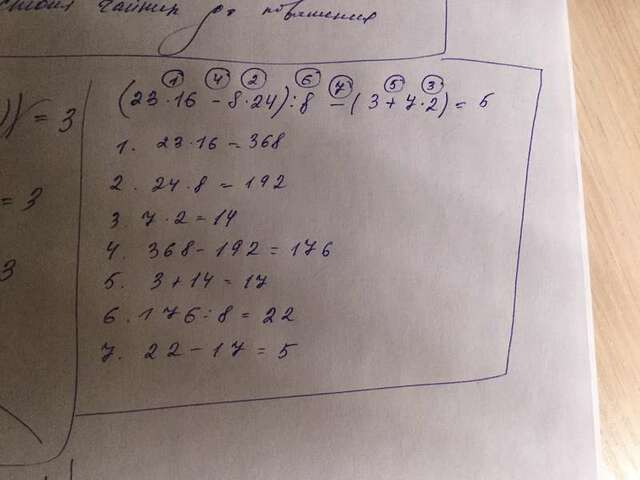 чайник
① ④ ② ⑥ ⑦ ⑤ ③
(23·16 - 8·24):8 - (3+7·2) = 5
)) = 3
1. 23·16 = 368
2. 24·8 = 192
= 3
3. 7·2 = 14
4. 368 - 192 = 176
3
5. 3 + 14 = 17
6. 176:8 = 22
7. 22 - 17 = 5